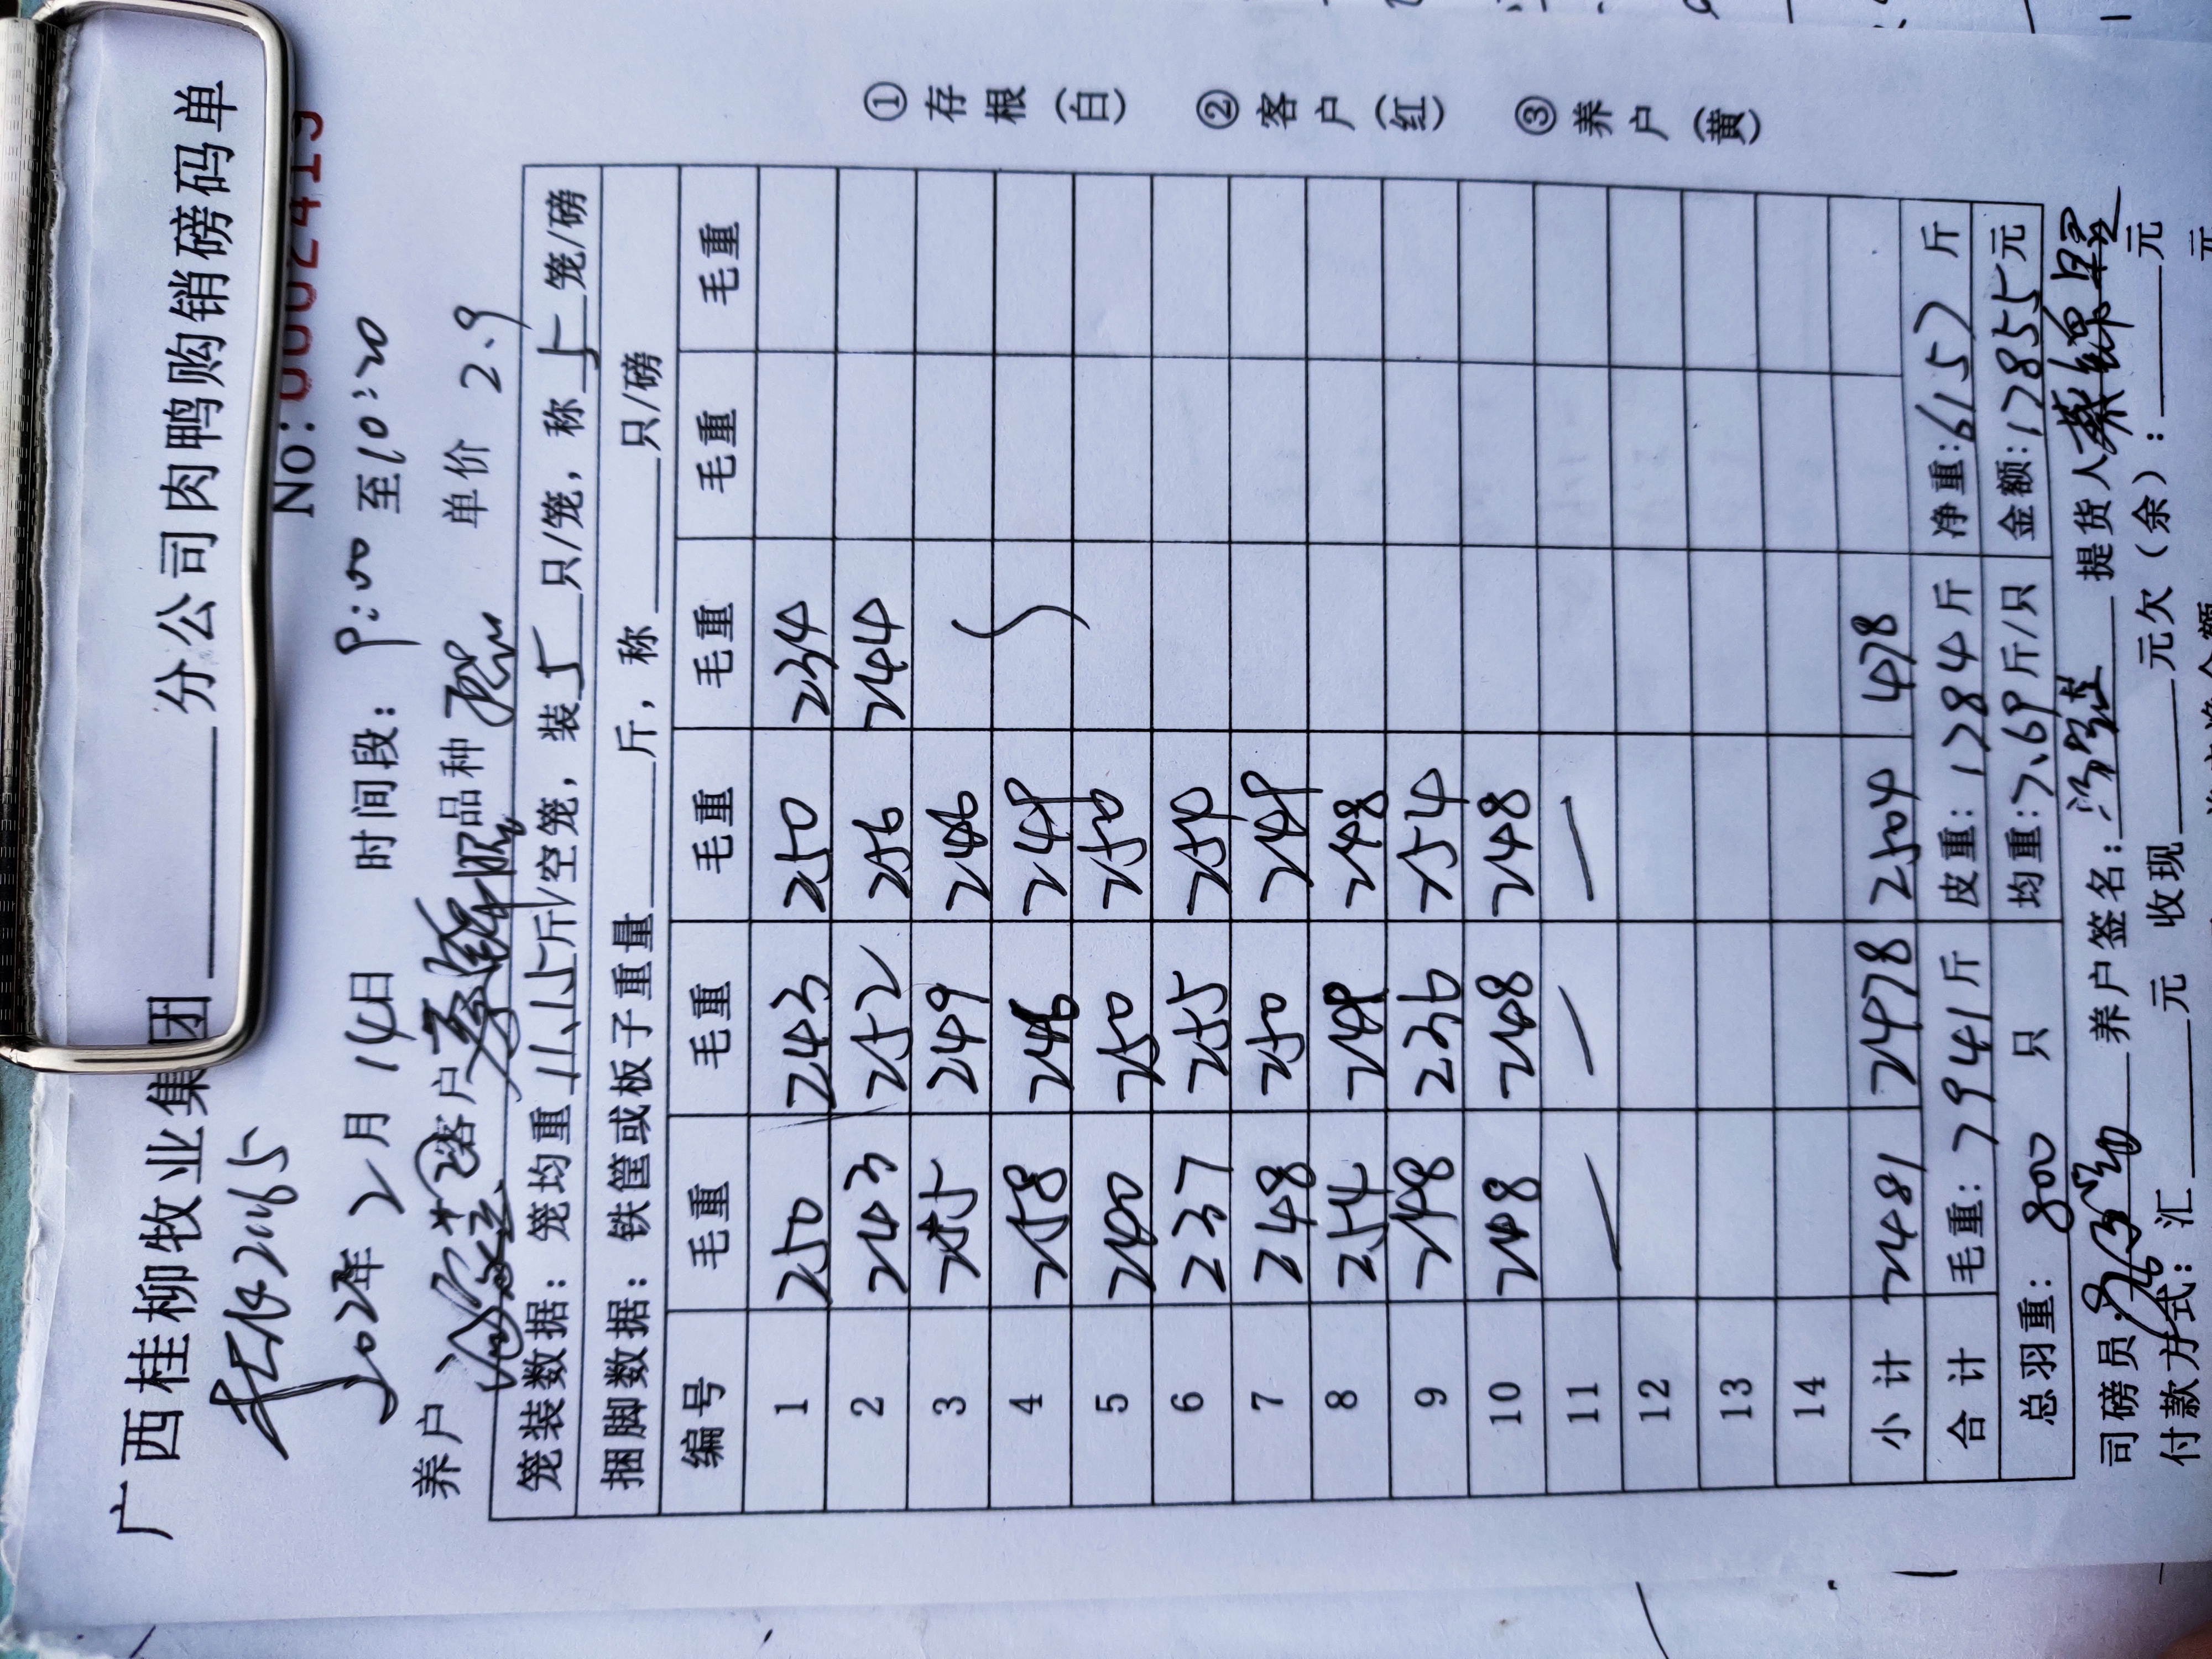 广西桂柳牧业集团______分公司肉鸭购销磅码单
No:0002419
2021年2月14日 时间段: 9:00至10:20
养户 客户 品种 单价 2.9
笼装数据: 笼均重11.15斤/空笼, 装5只/笼, 称5笼/磅
捆脚数据: 铁筐或板子重量______斤, 称______只/磅
编号 毛重 毛重 毛重 毛重 毛重 毛重
1 250 243 250 234
2 243 252 256 244
3 255 249 246
4 258 246 249
5 240 250 250
6 237 255 250
7 248 250 249
8 254 249 248
9 248 236 254
10 248 248 248
11 — — —
12
13
14
小计 2481 2478 2504 478
合计 毛重: 7941斤 皮重: 1784斤 净重: 6157斤
总羽重: 800只 均重: 7.69斤/只 金额: 17855元
司磅员: 养户签名: 提货人
付款方式: 汇______元 收现______元欠(余):______元
①存根(白) ②客户(红) ③养户(黄)